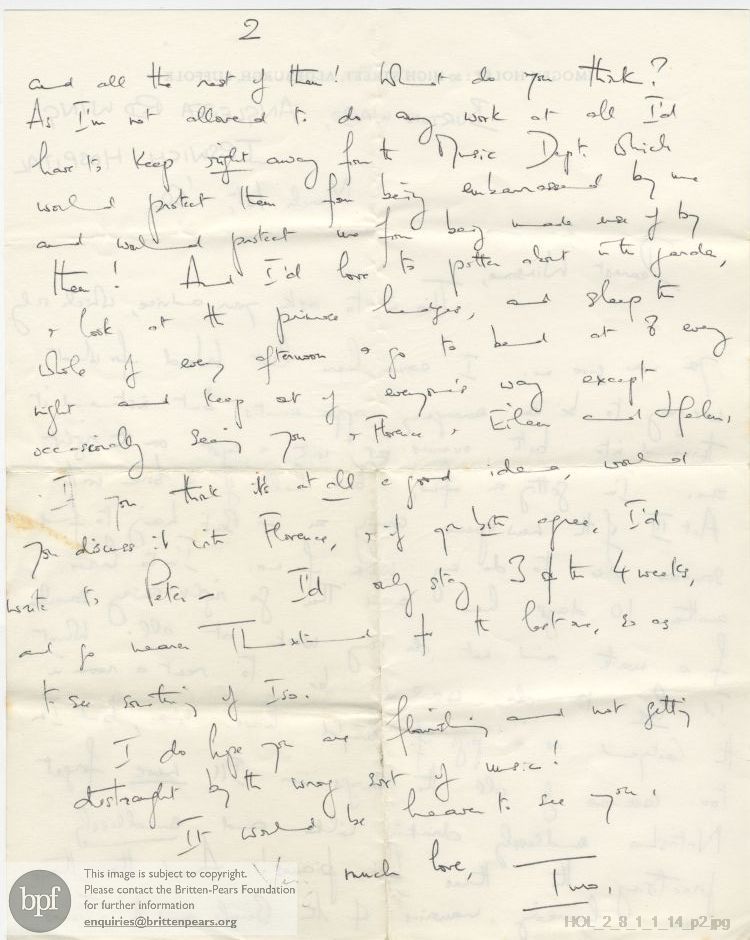 2
and all the rest of them! What do you think?
As I'm not allowed to do any work at all I'd
have to keep right away from the Music Dept. Which
would protect them from being embarrassed by me
and would protect me from being made use of by
them! And I'd love to potter about in the garden,
& look at the hedges, and sleep the
whole of every afternoon & go to bed at 8 every
night and keep out of everyone's way except
occasionally seeing you & Florence & Eileen and Helen,
If you think it's at all a good idea, would
you discuss it with Florence, & if you both agree, I'd
write to Peter – I'd only stay 3 of the 4 weeks,
and go nearer for the last one, so as
to see something of Iso.
I do hope you are flourishing and not getting
distraught by the wrong sort of music!
It would be heaven to see you.
much love,
Imo.
bpf
This image is subject to copyright.
Please contact the Britten-Pears Foundation
for further information
enquiries@brittenpears.org
HOL_2_8_1_1_14_p2.jpg